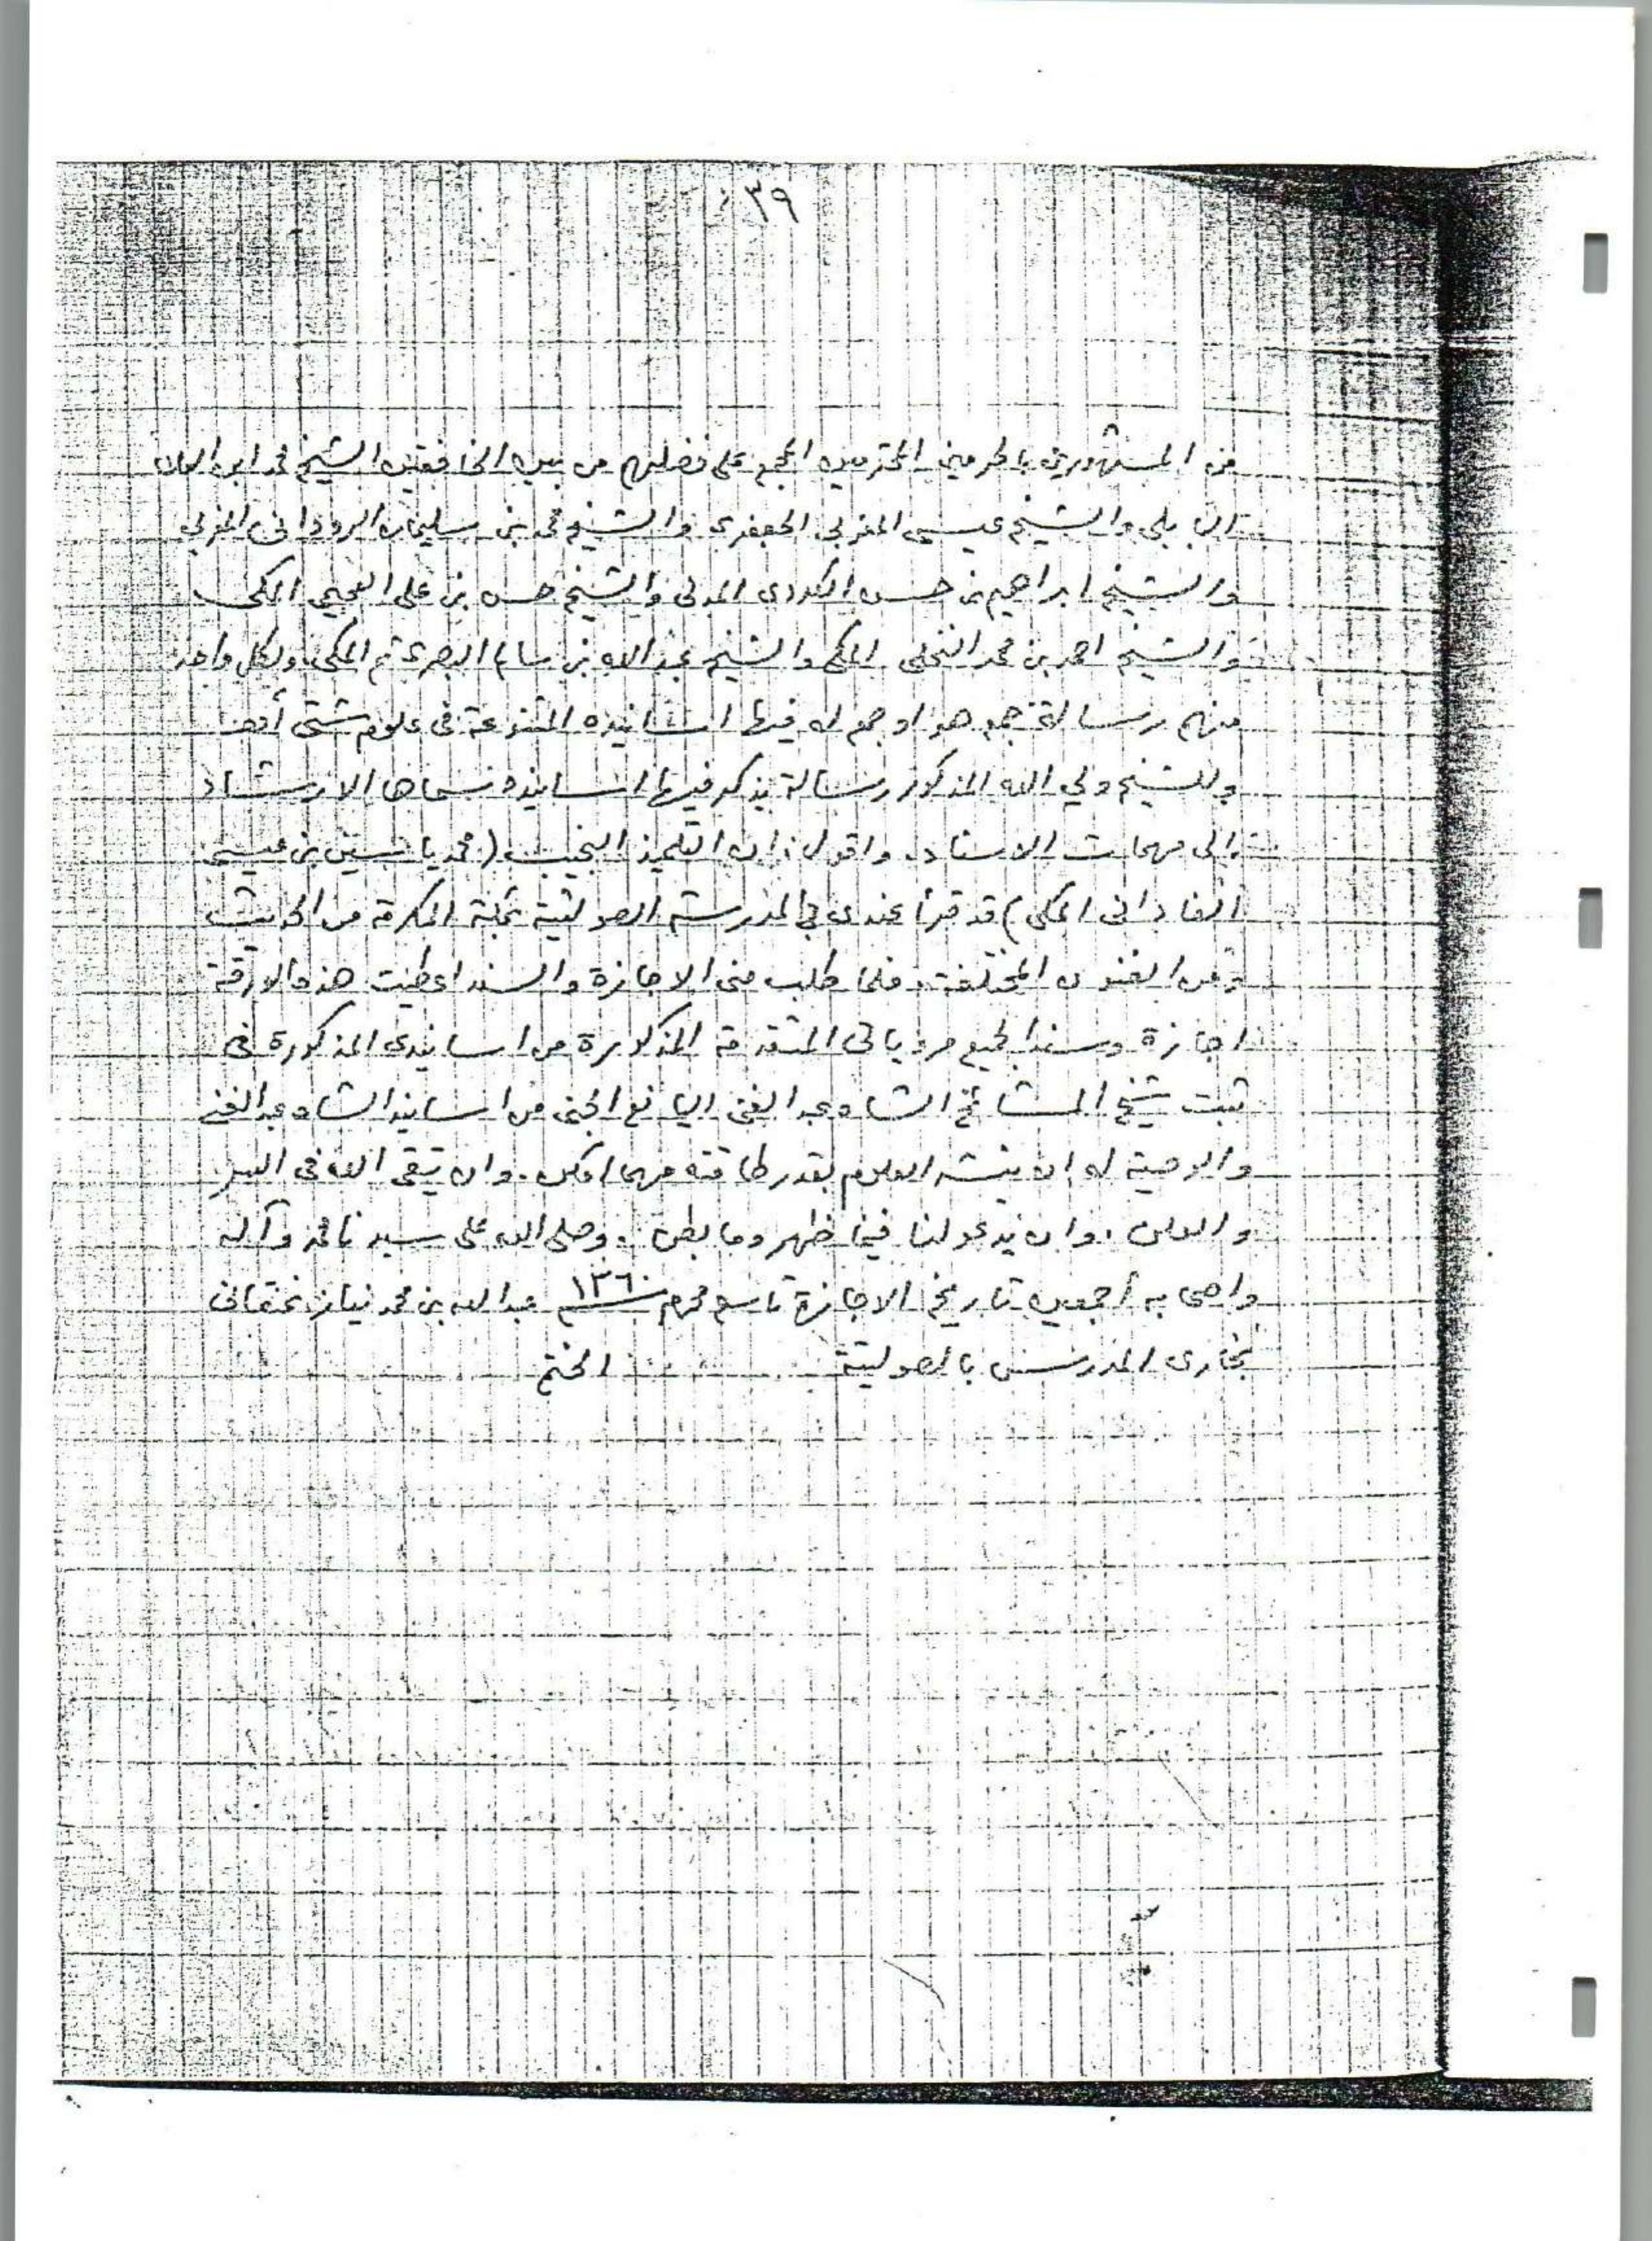 ٣٩
من المشهورين بالحرمين المحترمين المجمع على فضلهم من بين الخافقين الشيخ محمد ابن العلاء
البابلي والشيخ عيسى المغربي الجعفرى والشيخ محمد بن سليمان الرودانى المغربي
والشيخ ابراهيم بن حسن الكردى المدنى والشيخ حسن بن على العجيمي المكى
والشيخ احمد بن محمد النخلى المكى والشيخ عبد الله بن سالم البصرى ثم المكى ولكل واحد
منهم رسالة جمع هو او جمع له فيها اسانيده المتنوعة فى علوم شتى
وللشيخ ولي الله المذكور رسالة يذكر فيها اسانيده سماها الارشاد
الى مهمات الاسناد. واقول: ان التلميذ النجيب (محمد ياسين بن عيسى
الفادانى المكى) قد قرأ عندى في المدرسة الصولتية بمكة المكرمة من الحديث
ومن الفنون المختلفة. فلما طلب منى الاجازة والسند اعطيت هذه الورقة
اجازة وسندا لجميع مروياتى المتقدمة المذكورة من اسانيدى المذكورة فى
ثبت شيخ المشائخ الشاه عبد الغنى اليانع الجنى من اسانيد الشاه عبد الغنى
والوصية له ان ينشر العلوم بقدر طاقته مهما امكن. وان يتقى الله فى السر
والعلن. وان يدعو لنا فيما ظهر وما بطن. وصلى الله على سيدنا محمد وآله
واصحابه أجمعين تاريخ الاجازة تاسع محرم ١٣٦٠ عبد الله بن محمد نياز نمنقانى
بخارى المدرس بالصولتية الختم